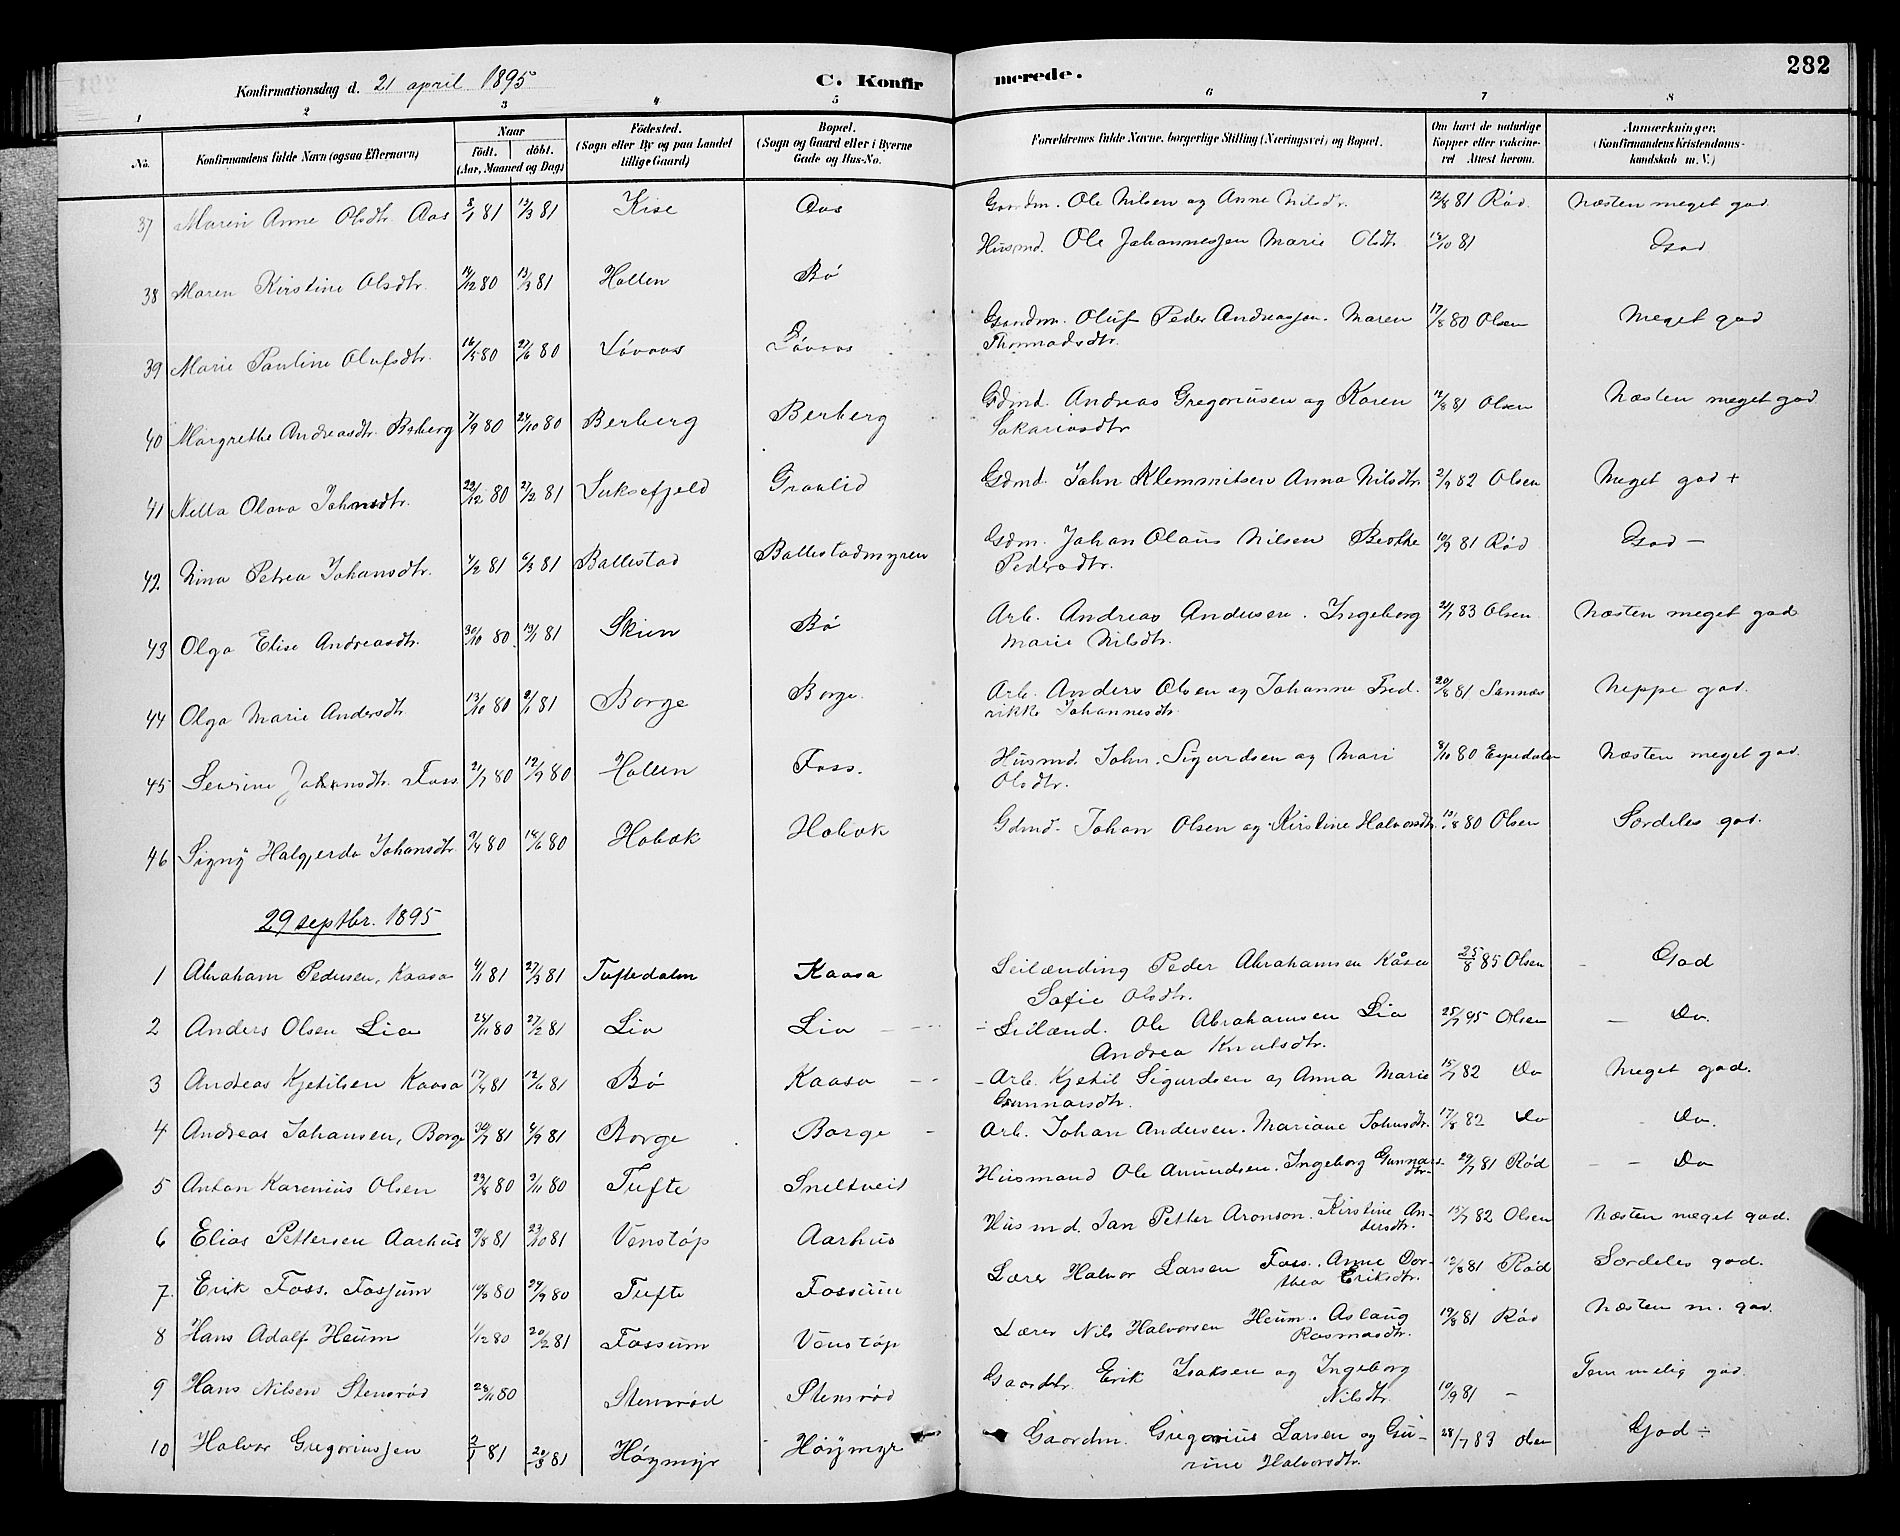 282
Konfirmationsdag d. 21 april 1895 C. Konfir merede.
1 2 3 4 5 6 7 8
No. Konfirmandens fulde Navn (ogsaa Efternavn) Naar födt. döbt. (Aar, Maaned og Dag) Födested. (Sogn eller By og paa Landet tillige Gaard) Bopæl. (Sogn og Gaard eller i Byerne Gade og Hus-No. Forældrenes fulde Navne, borgerlige Stilling (Næringsvei) og Bopæl. Om havt de naturlige Kopper eller vakcineret Attest herom. Anmærkninger. (Konfirmandens Kristendomskundskab m. V.)
37 Maren Anne Olsdtr. Aas 8/1 81 13/3 81 Kise Aas Gaardm. Ole Nilsen og Anne Nilsdtr. 12/8 81 Rød. Næsten meget god
38 Maren Kirstine Olsdtr. 14/12 80 13/3 81 Hollen Bö Husmd. Ole Johannesjen Marie Olsdtr. 13/10 81 God
39 Marie Pauline Olufsdtr. 16/5 80 27/6 80 Lövaas Lövaas Gaardm. Oluf Peder Andreasjen. Maren Thomadsdtr. 17/8 80 Olsen Meget god
40 Margrethe Andreasdtr. Berberg 7/9 80 24/10 80 Berberg Berberg Gdmd. Andreas Gregoriusen og Karen Sakariasdtr 12/8 81 Olsen Næsten meget god
41 Nella Olava Johnsdtr. 22/12 80 27/2 81 Luksefjeld Graalid Gdmd. John Klemmitsen Anna Nilsdtr 2/9 82 Olsen Meget god +
42. Nina Petrea Johansdtr. 7/2 81 6/3 81 Ballestad Ballestadmyren Gdm. Johan Olaus Nilsen Berthe Pedersdtr. 10/9 81 Rød God —
43 Olga Elise Andreasdtr. 30/10 80. 13/1 81 Skien Bö Arb. Andreas Andersen. Ingeborg Marie Nilsdtr. 2/7 83 Olsen. Næsten meget god
44 Olga Marie Andersdtr 13/10 80 9/1 81 Borge Borge. Arb. Anders Olsen og Johanne Fredrikke Johannesdtr. 20/8 81 Sannes Neppe god.
45 Sevrine Johansdtr. Foss 21/7 80 12/9 80 Hollen Foss. Husmd. John. Sigurdsen og Mari Olsdtr. 8/10 80 Espedalen Næsten meget god.
46 Signÿ Halgjerda Johansdtr. 9/4 80 14/6 80 Hobæk Hobæk Gdmd. Johan Olsen og Kirstine Halvorsdtr. 13/8 80 Olsen Særdeles god.
29 septbr. 1895
1 Abraham Pedersen, Kaasa 4/1 81 27/3 81 Tuftedalen Kaasa Leilænding Peder Abrahamsen Kåsa Sofie Olsdtr. 25/8 85 Olsen God
2 Anders Olsen Lia 23/11 80 27/2 81 Lia Lia Leilænd. Ole Abrahamsen Lia Andrea Knutsdtr. 25/7 95 Olsen — Do.
3 Andreas Kjetilsen Kaasa 17/4 81 12/6 81 Bö Kaasa Arb. Kjetil Sigurdsen og Anna Marie Gunnarsdtr. 15/7 82 Do Meget god.
4 Andreas Johansen, Borge 30/7 81 4/9 81 Borge Borge Arb. Johan Andersen. Mariane Johnsdtr. 17/8 82 Do Do.
5 Anton Karenius Olsen 29/8 80 9/11 80 Tufte Sneltveit Husmand Ole Amundsen. Ingeborg Gunnarsdtr. 29/7 81 Rød — — Do
6 Elias Pettersen Aarhus 9/8 81 23/10 81 Venstöp Aarhus Husmd. Jan Petter Aronson. Kirstine Andersdtr. 13/7 82 Olsen Næsten meget god.
7. Erik Foss. Fossum 10/6 80 24/9 80 Tufte Fossum Lærer Halvor Larsen Foss. Anne Dorthea Eriksdtr. 12/8 81 Rød Særdeles god.
8 Hans Adolf Heum 1/12 80 20/2 81 Fossum Venstöp Lærer Nils Halvorsen Heum. Aslaug Rasmusdtr. 19/8 81 Rød Næsten m. god.
9 Hans Nilsen Stensröd 23/11 80 Stensröd Stensröd Gaardbr. Erik Isaksen og Ingeborg Nilsdtr. 10/9 81 — Temmelig god.
10 Halvor Gregoriusjen 2/1 81 20/3 81 Höymyr Höymyr Gaardm. Gregorius Larsen og Gurine Halvorsdtr. 28/7 83 Olsen God ÷